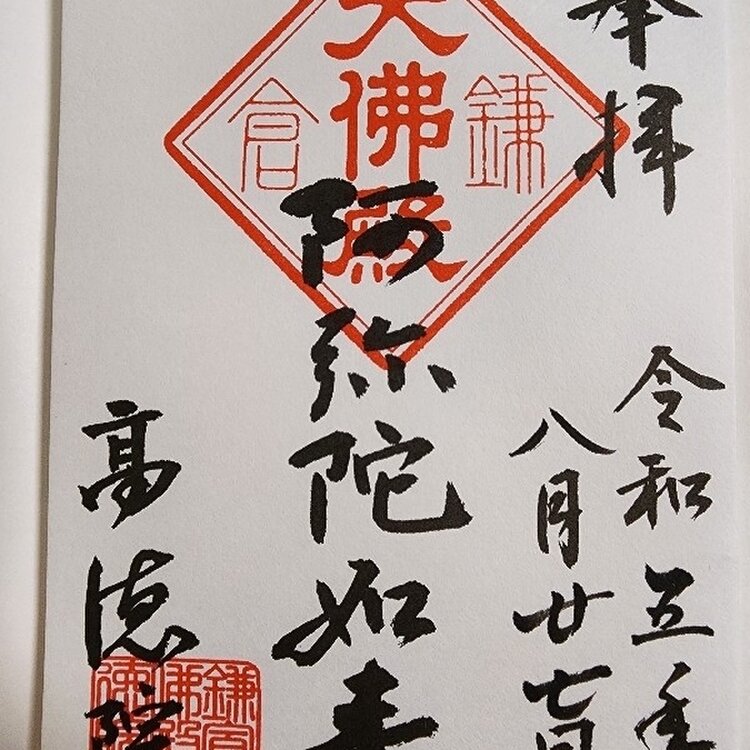 奉拝
令和五年
八月廿七日
鎌倉
大佛殿
阿弥陀如来
高徳院